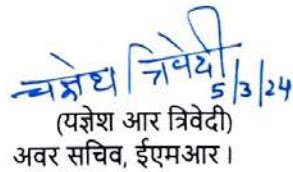 यज्ञेश त्रिवेदी
5/3/24
(यज्ञेश आर त्रिवेदी)
अवर सचिव, ईएमआर।